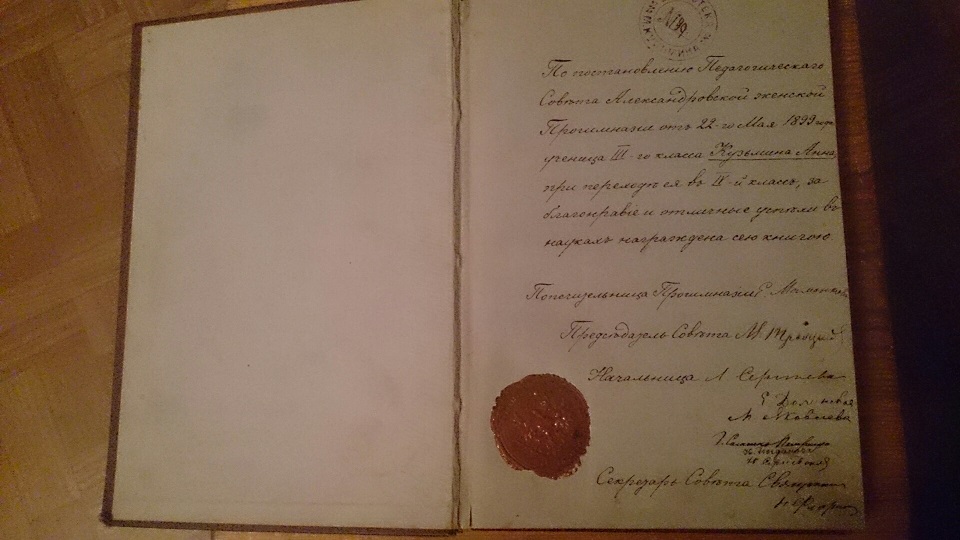 № 199
По постановленію Педагогическаго
Совѣта Александровской женской
Прогимназіи отъ 22-го Мая 1899 года
ученица III-го класса Кузьмина Анна,
при переходѣ ея въ IV-й классъ, за
благонравіе и отличные успѣхи въ
наукахъ награждена сею книгою
Попечительница Прогимназіи
Предсѣдатель Совѣта М. Троцкій
Начальница Л Сергѣева
М Яковлева
Секретарь Совѣта